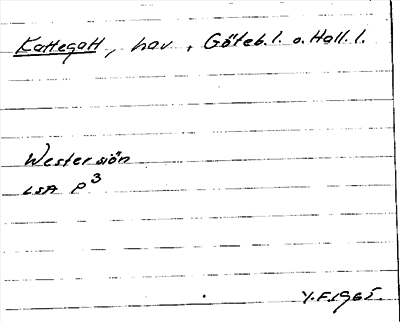 Kattegatt, hav, Göteb. l. o. Hall. l.
Wester siön
LSA P3
Y.F. 1965.